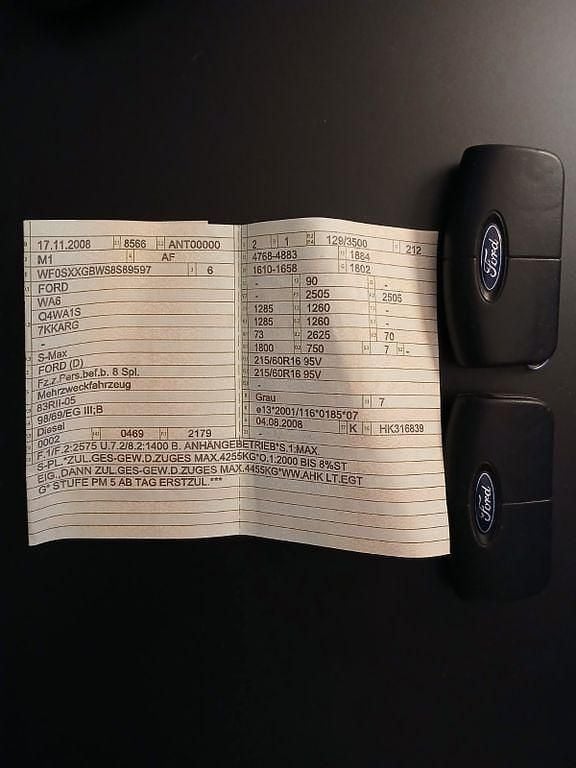 17.11.2008 8566 ANT00000
M1 AF
WF0SXXGBWS8S89597 6
FORD
WA6
Q4WA1S
7KKARG
-
S-Max
FORD (D)
Fz.z.Pers.bef.b. 8 Spl.
Mehrzweckfahrzeug
83RII-05
98/69/EG III;B
Diesel
0002 0469 2179
2 1 129/3500 212
4768-4883 1884
1610-1658 1602
- 90 -
- 2505 2505
1285 1260 -
1285 1260 -
73 2625 70
1800 750 7 -
215/60R16 95V
215/60R16 95V
-
Grau 7
e13*2001/116*0185*07
04.08.2008 K HK316839
F.1/F.2:2575 U.7.2/8.2:1400 B. ANHÄNGEBETRIEB*S.1:MAX.
S-PL.*ZUL.GES-GEW.D.ZUGES MAX.4255KG*O.1:2000 BIS 8%ST
EIG.DANN ZUL.GES-GEW.D.ZUGES MAX.4455KG*WW.AHK LT.EGT
G* STUFE PM 5 AB TAG ERSTZUL ***
Ford
Ford